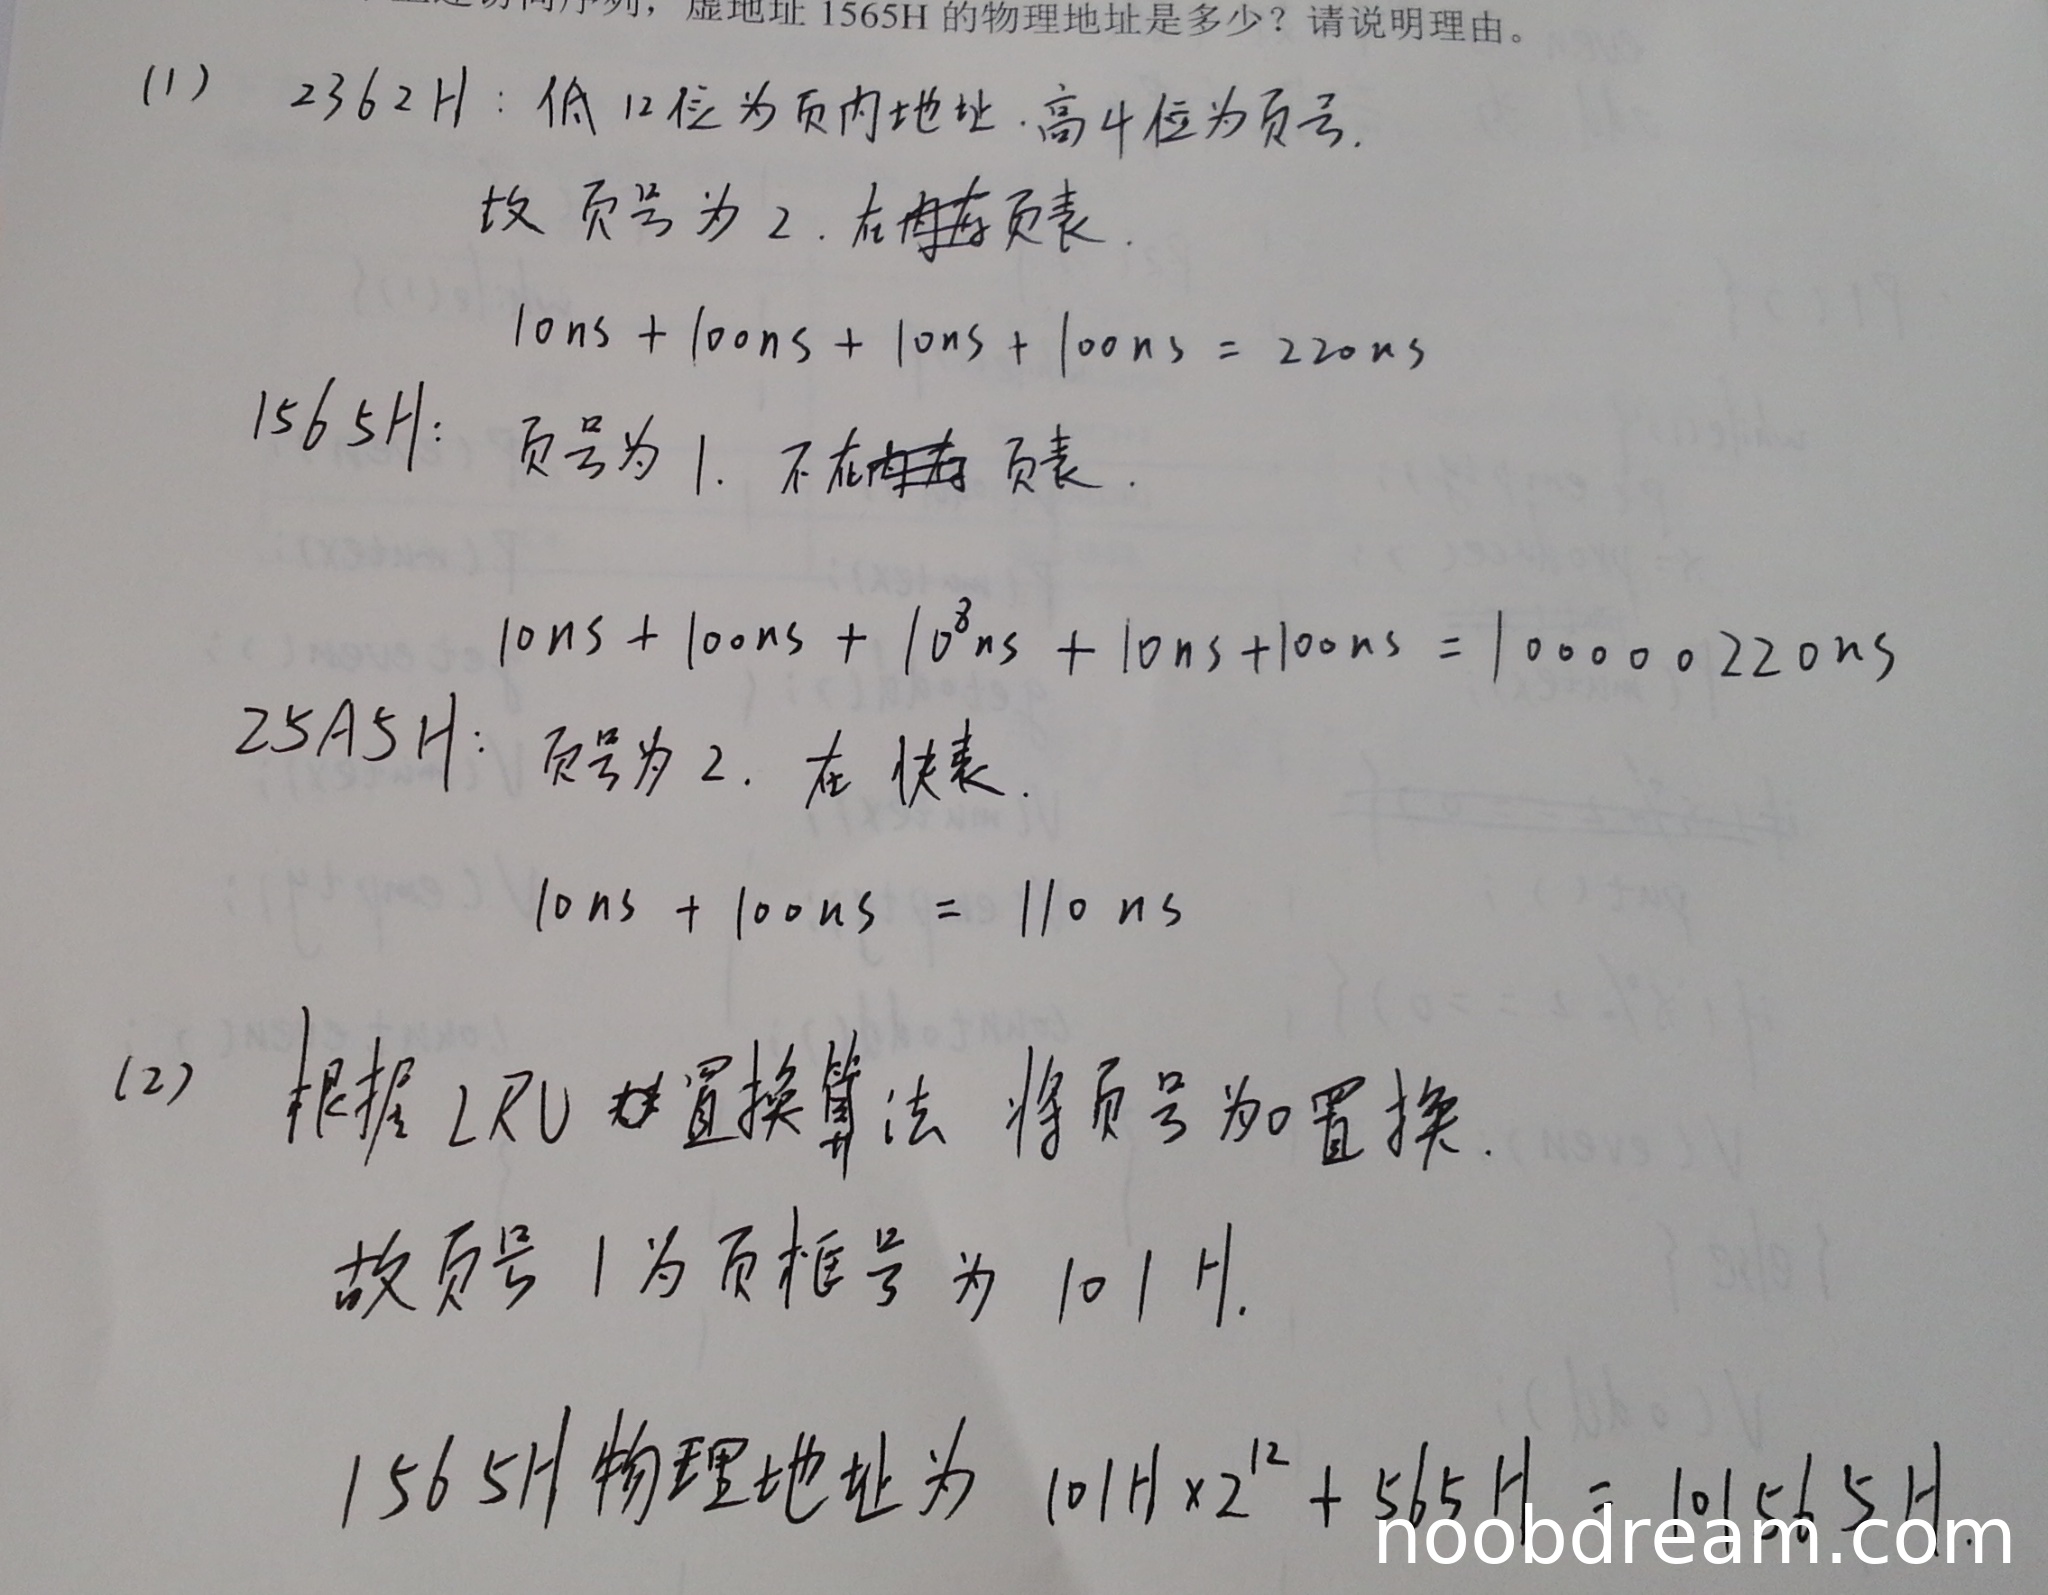 访问序列，虚地址 1565H 的物理地址是多少？请说明理由。
(1) 2362H：低12位为页内地址．高4位为页号．
故页号为2．在页表．
10ns + 100ns + 10ns + 100ns = 220ns
1565H： 页号为1．不在页表．
10ns + 100ns + 10⁸ns + 10ns + 100ns = 100000220ns
25A5H： 页号为2．在快表．
10ns + 100ns = 110ns
(2) 根据LRU置换算法 将页号为0置换．
故页号1为页框号为101H．
1565H物理地址为 101H×2¹² + 565H = 101565H．
noobdream.com